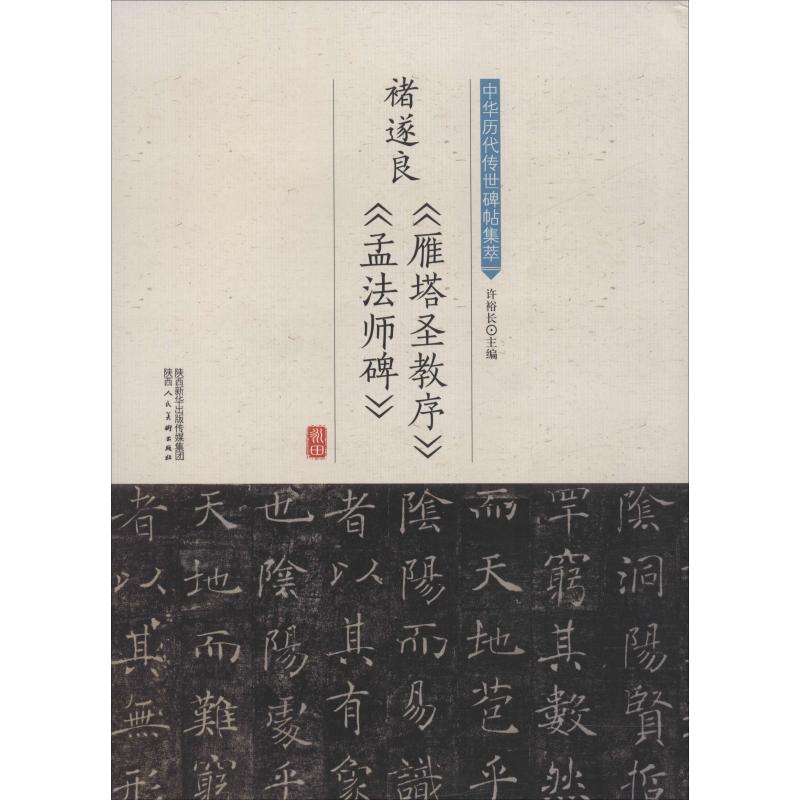 中华历代传世碑帖集萃
许裕长⊙主编
褚遂良
《雁塔圣教序》
《孟法师碑》
陕西新华出版传媒集团
陕西人民美术出版社
陰洞陽賢哲
罕窮其數然
而天地苞乎
陰陽而易識
者以其有象
也陰陽處乎
天地而難窮
者以其無形